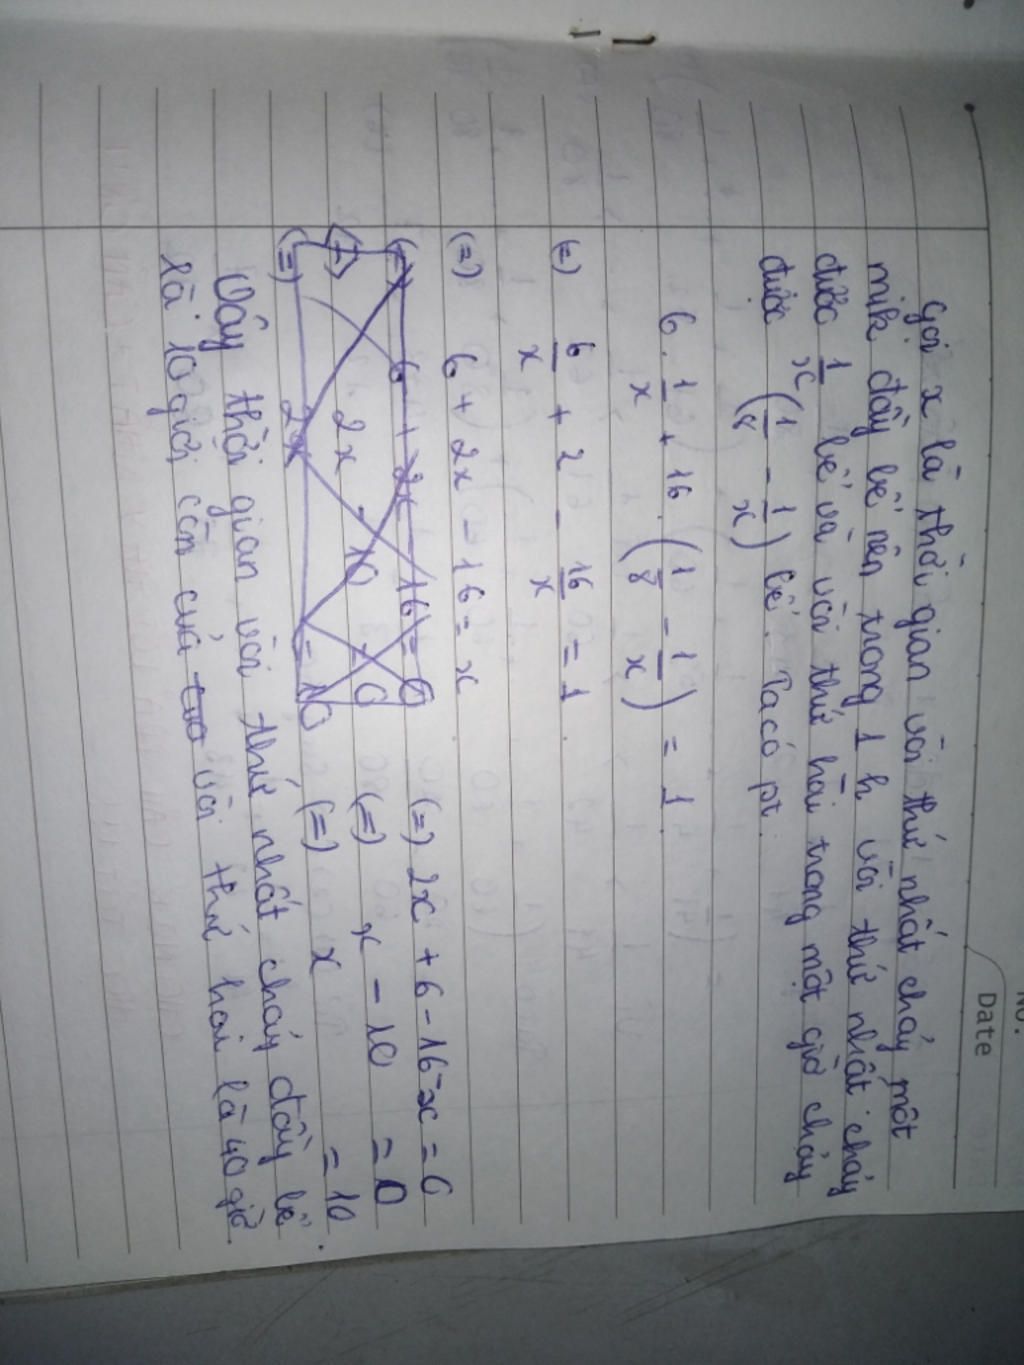 No.
Date
Gọi x là thời gian vòi thứ nhất chảy một
mik đầy bể nên trong 1 h vòi thứ nhất chảy
được 1/x bể và vòi thứ hai trong một giờ chảy
được (1/8 - 1/x) bể. Ta có pt:
6 . 1/x + 16 . (1/8 - 1/x) = 1
(=) 6/x + 2 - 16/x = 1
(=) 6 + 2x - 16 = x
(=) 6 + 2x - 16 = 0 (=) 2x + 6 - 16 - x = 0
(=) 2x - 10 = 0 (=) x - 10 = 0
(=) 2x = 10 (=) x = 10
Vậy thời gian vòi thứ nhất chảy đầy bể
là 10 giờ, còn của vòi thứ hai là 40 giờ.